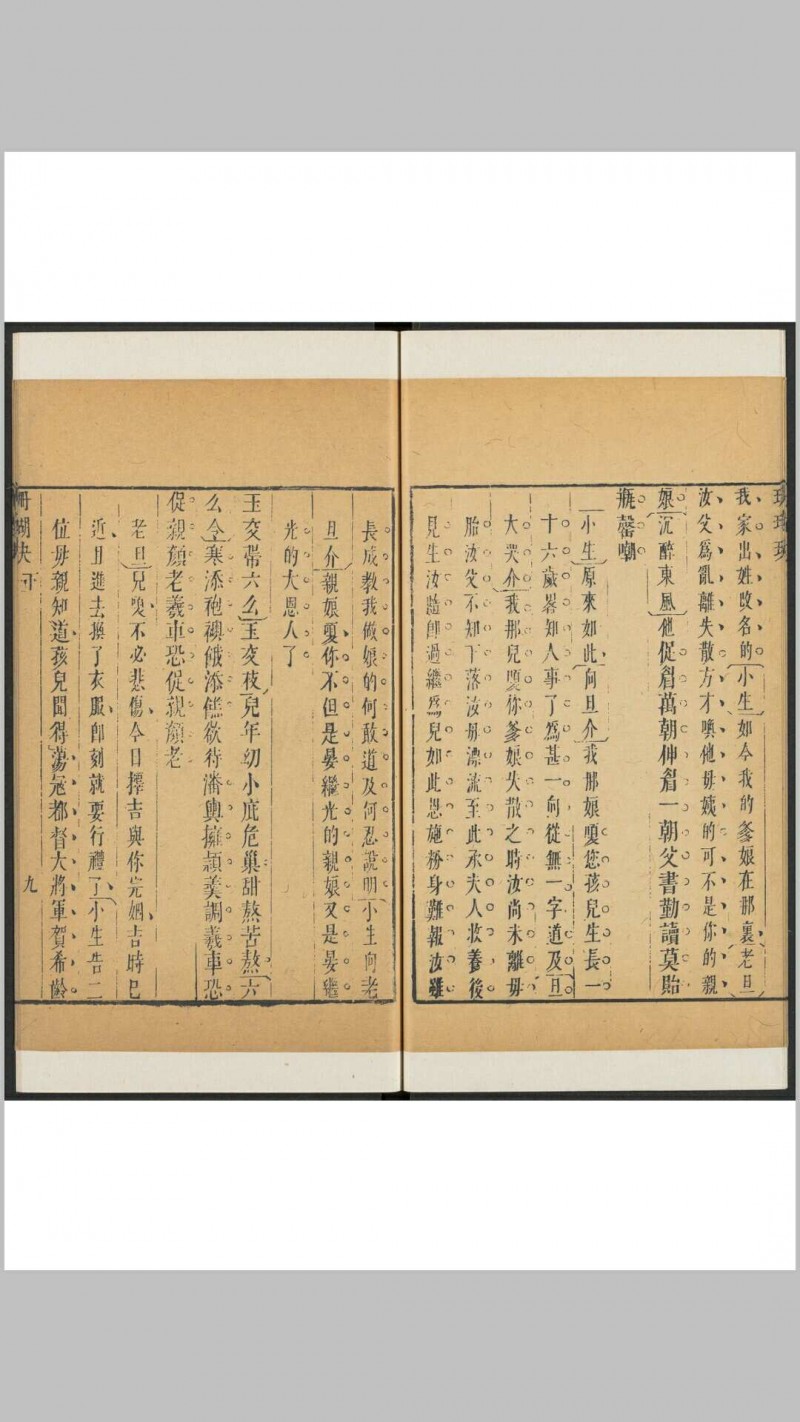 我家出姓改名的小生如今我的爹娘在那裏老旦
汝父爲亂離失散方才喚他母姨的可不是你的親
娘沉醉東風催促眉萬朝伸眉一朝父書勤讀莫貽
缾罄嘲
小生原來如此向旦介我那娘嗄您孩兒生長一
十六歲畧知人事了爲甚一向從無一字道及旦
大哭介我那兒嗄你爹娘失散之時汝尚未離母
胎汝父不知下落汝母漂流至此承夫人收養後
見生汝隨卽過繼爲兒如此恩施粉身難報汝雖
長成教我做娘的何敢道及何忍說明小生向老
旦介親娘嗄你不但是晏繼光的親娘又是晏繼
光的大恩人了
玉交帶六么玉交枝兒年幼小庇危巢甜熬苦熬六
么令寒添袍襖餓添饎欲待潘輿擁潁羹調羲車恐
促親顏老羲車恐促親顏老
老旦兒嗄不必悲傷今日擇吉與你完姻吉時已
近且進去換了衣服卽刻就要行禮了小生告二
位母親知道孩兒聞得蕩寇都督大將軍賀希齡
珊瑚玦下
九